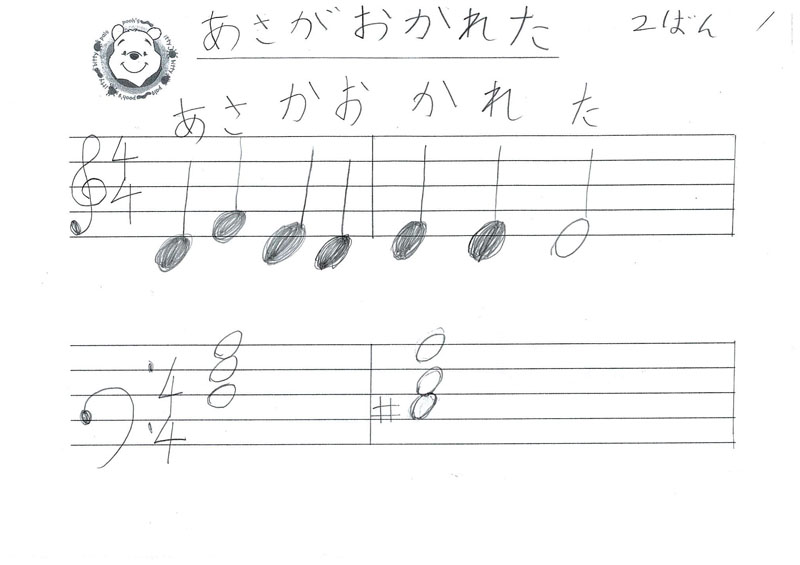 あさがおかれた 2ばん
あさ かお かれ た
4
4
4
4